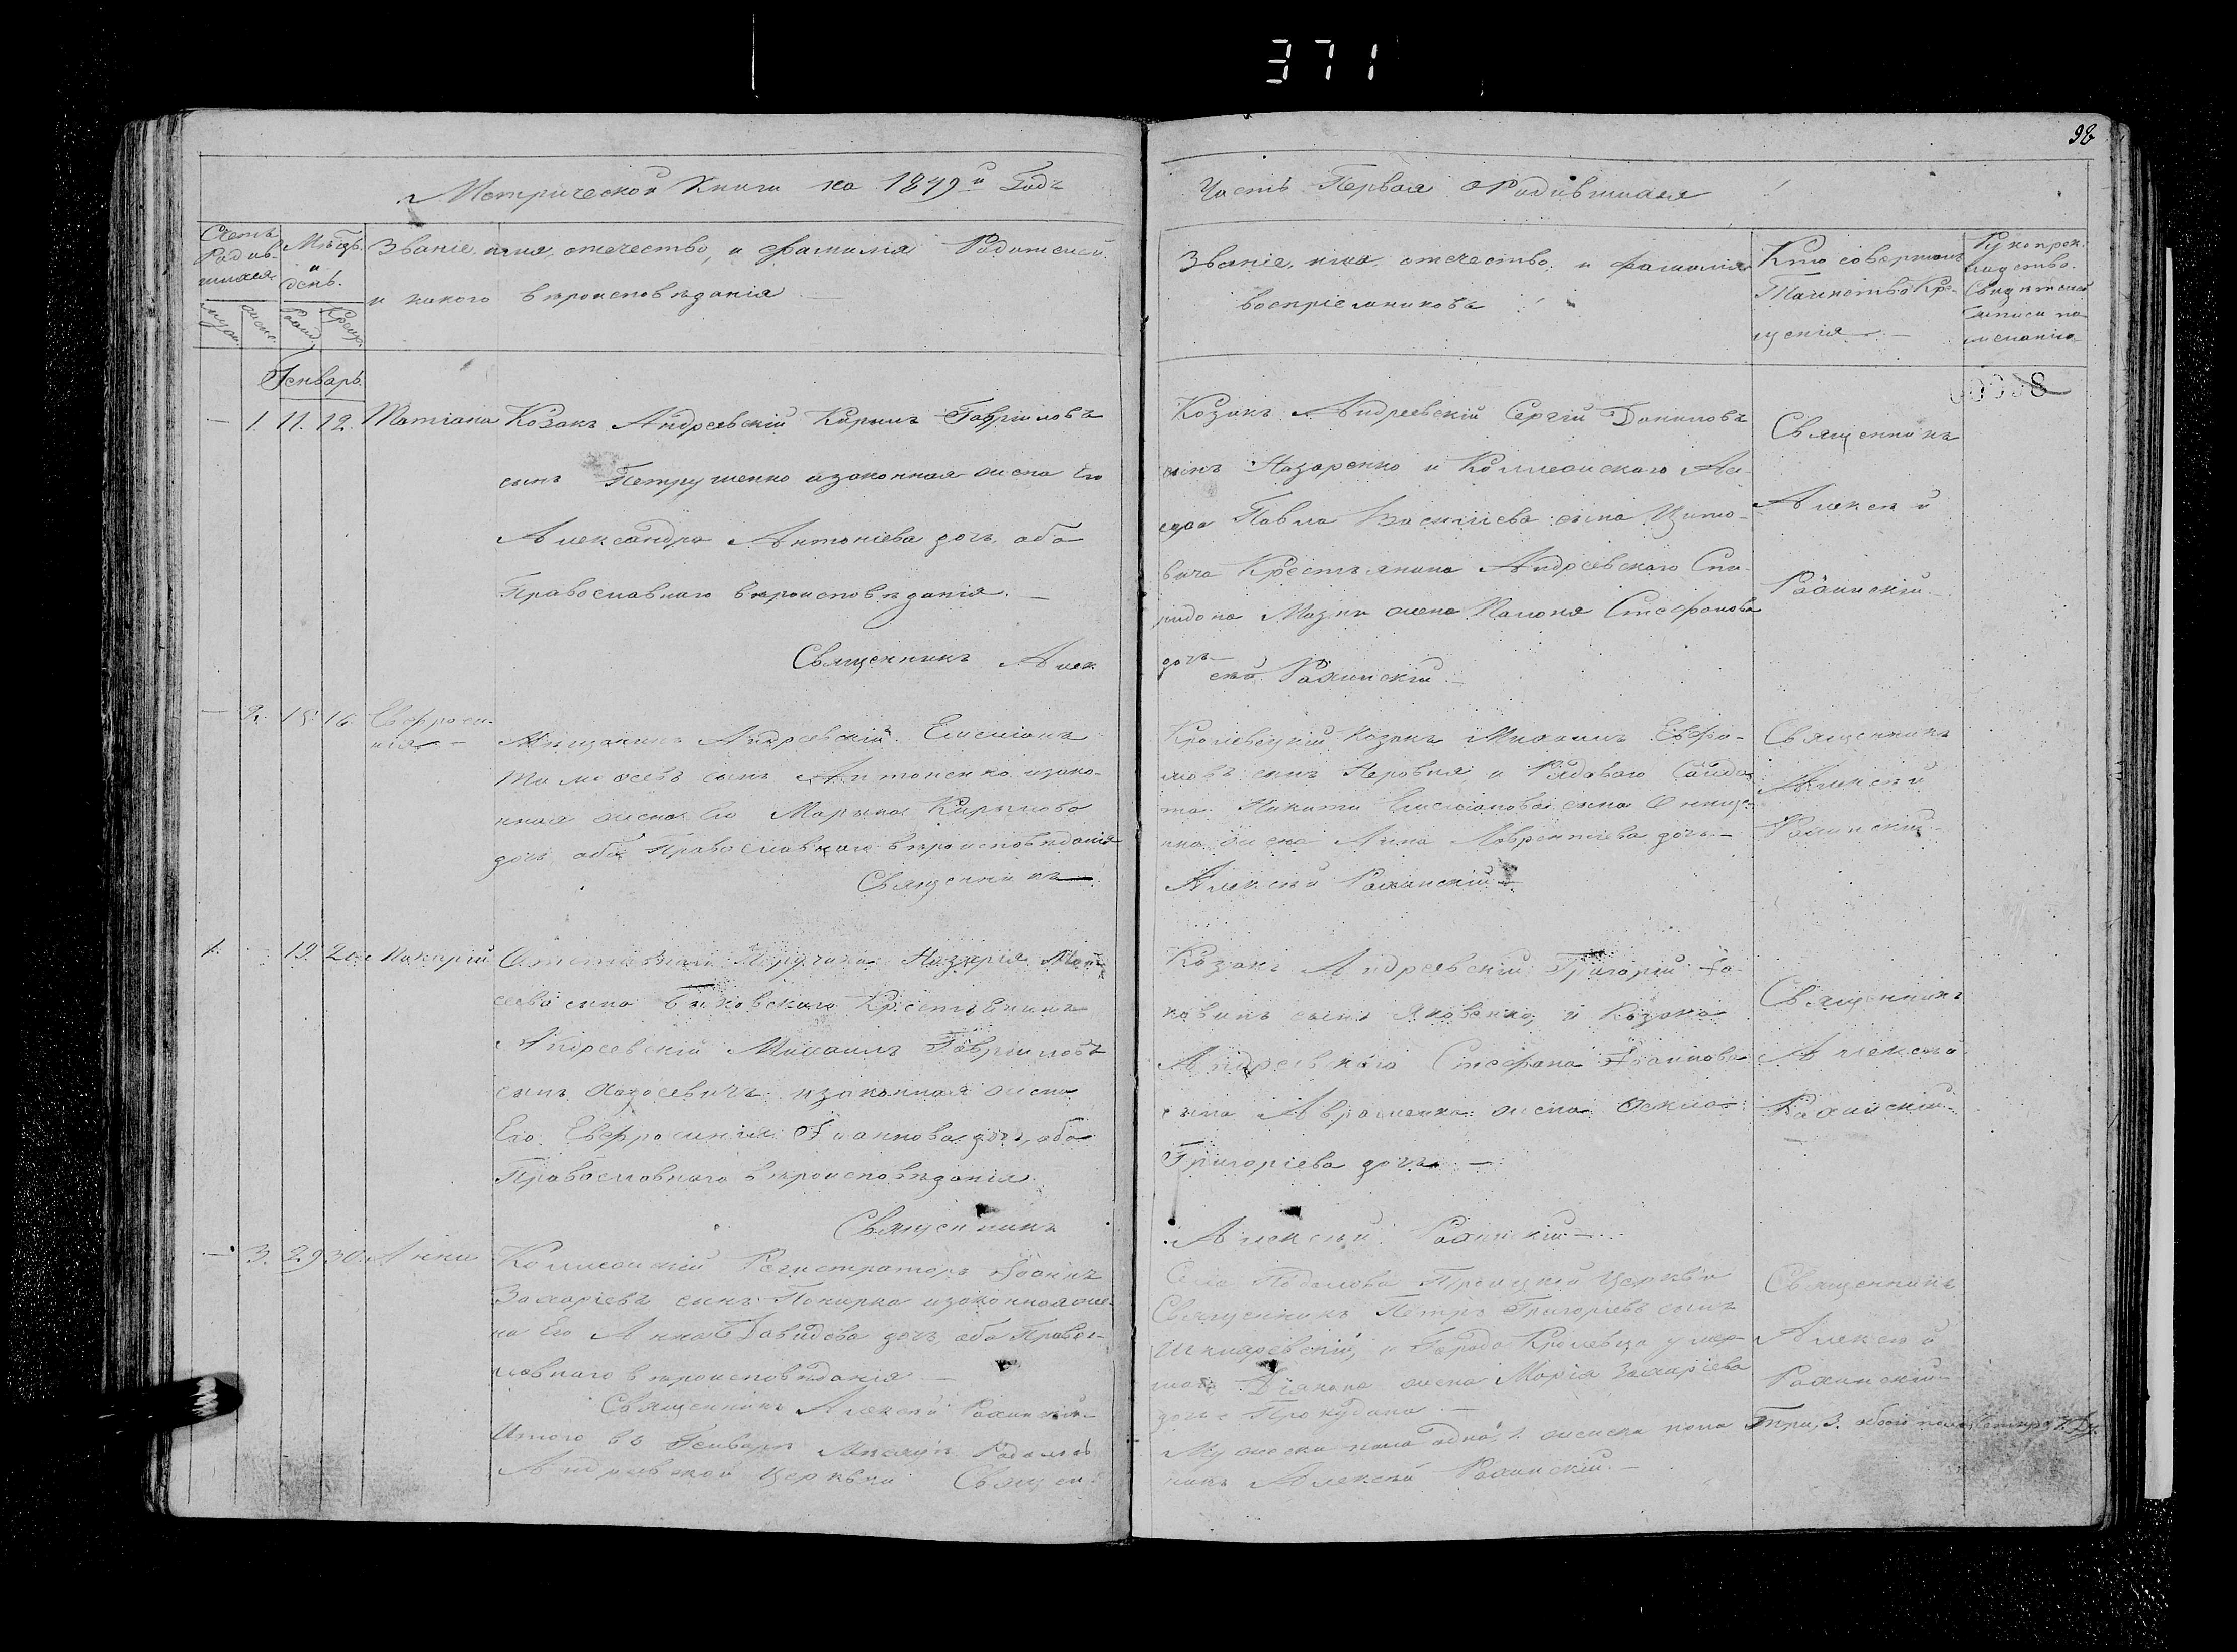 371
98
Метрической Книги на 1849й Годъ
Часть Первая о Родившихся
Счетъ Родив-шихся
Мѣсцъ и день.
Званіе, имя, отечество, и фамилія Родителей.
и какого вѣроисповѣданія
Званіе, имя, отечество, и фамилія
воспріемниковъ
Кто совершалъ
Таинство Кре-
щенія
Рукоприк-
ладство
Свидѣтелей
записи по
желанію
Генварь
— 1. 11. 12. Татіана
Козакъ Андреевскій Кирилъ Гавріиловъ
сынъ Петрушенко изаконная жена Его
Александра Антоніева дочь, оба
Православнаго вѣроисповѣданія. —
Священникъ Алек
Козакъ Андреевскій Сергій Даниловъ
сынъ Назаренко и Коллежскаго Асе-
Павла Василіева сына
вича Крестьянина Андреевскаго Спи-
ридона жена Стефанова
дочь
сѣй Рахинскій. —
Священникъ
Алексѣй
Рахинскій
— 2. 15. 16. Евфроси-
нія —
Мещанинъ Андреевскій Емеліанъ
Тимофеевъ сынъ Антоненко изако-
нная жена Его Марина Кирилова
дочь, оба Православнаго вѣроисповѣданія
Священникъ
Кролевецкій Козакъ Михаилъ Евфи-
мовъ сынъ и Рядоваго Солда-
та Никити Емеліанова сына Онище-
нка жена Анна Лаврентіева дочь —
Алексѣй Рахинскій —
Священникъ
Алексѣй
Рахинскій
1. — 19. 20. Макарій
Отставнаго Поручика Назарія Мои-
сеева сына Быковскаго Крестьянинъ
Андреевскій Михаилъ Гавріиловъ
сынъ изаконная жена
Его Евфросинія Іоаннова дочь, оба
Православнаго вѣроисповѣданія
Священникъ
Козакъ Андреевскій Григорій Іа-
ковивъ сынъ Яковенко, и Козака
Андреевскаго Стефана Іоаннова
сына Авраменка жена
Григоріева дочь. —
Алексѣй Рахинскій —
Священникъ
Алексѣй
Рахинскій
— 3. 29 30. Анна
Коллежскій Регистраторъ Іоаннъ
Захаріевъ сынъ Понырка изаконная же-
на Его Анна Давидова дочь, оба Правос-
лавнаго вѣроисповѣданія —
Священникъ Алексѣй Рахинскій —
Села Подолова Троицкой Церкви
Священникъ Петръ Григоріевъ сынъ
Шкларевскій, и Города Кролевца умер-
шаго Діакона жена Марія Захаріева
дочь —
Священникъ
Алексѣй
Рахинскій
Итого въ Генварѣ Мѣсяцѣ Родилось
Мужеска пола одно, 1. женска пола Три, 3. обоего пола Четыре, 4. Ду.
Андреевской Церкви Священ-
никъ Алексѣй Рахинскій. —